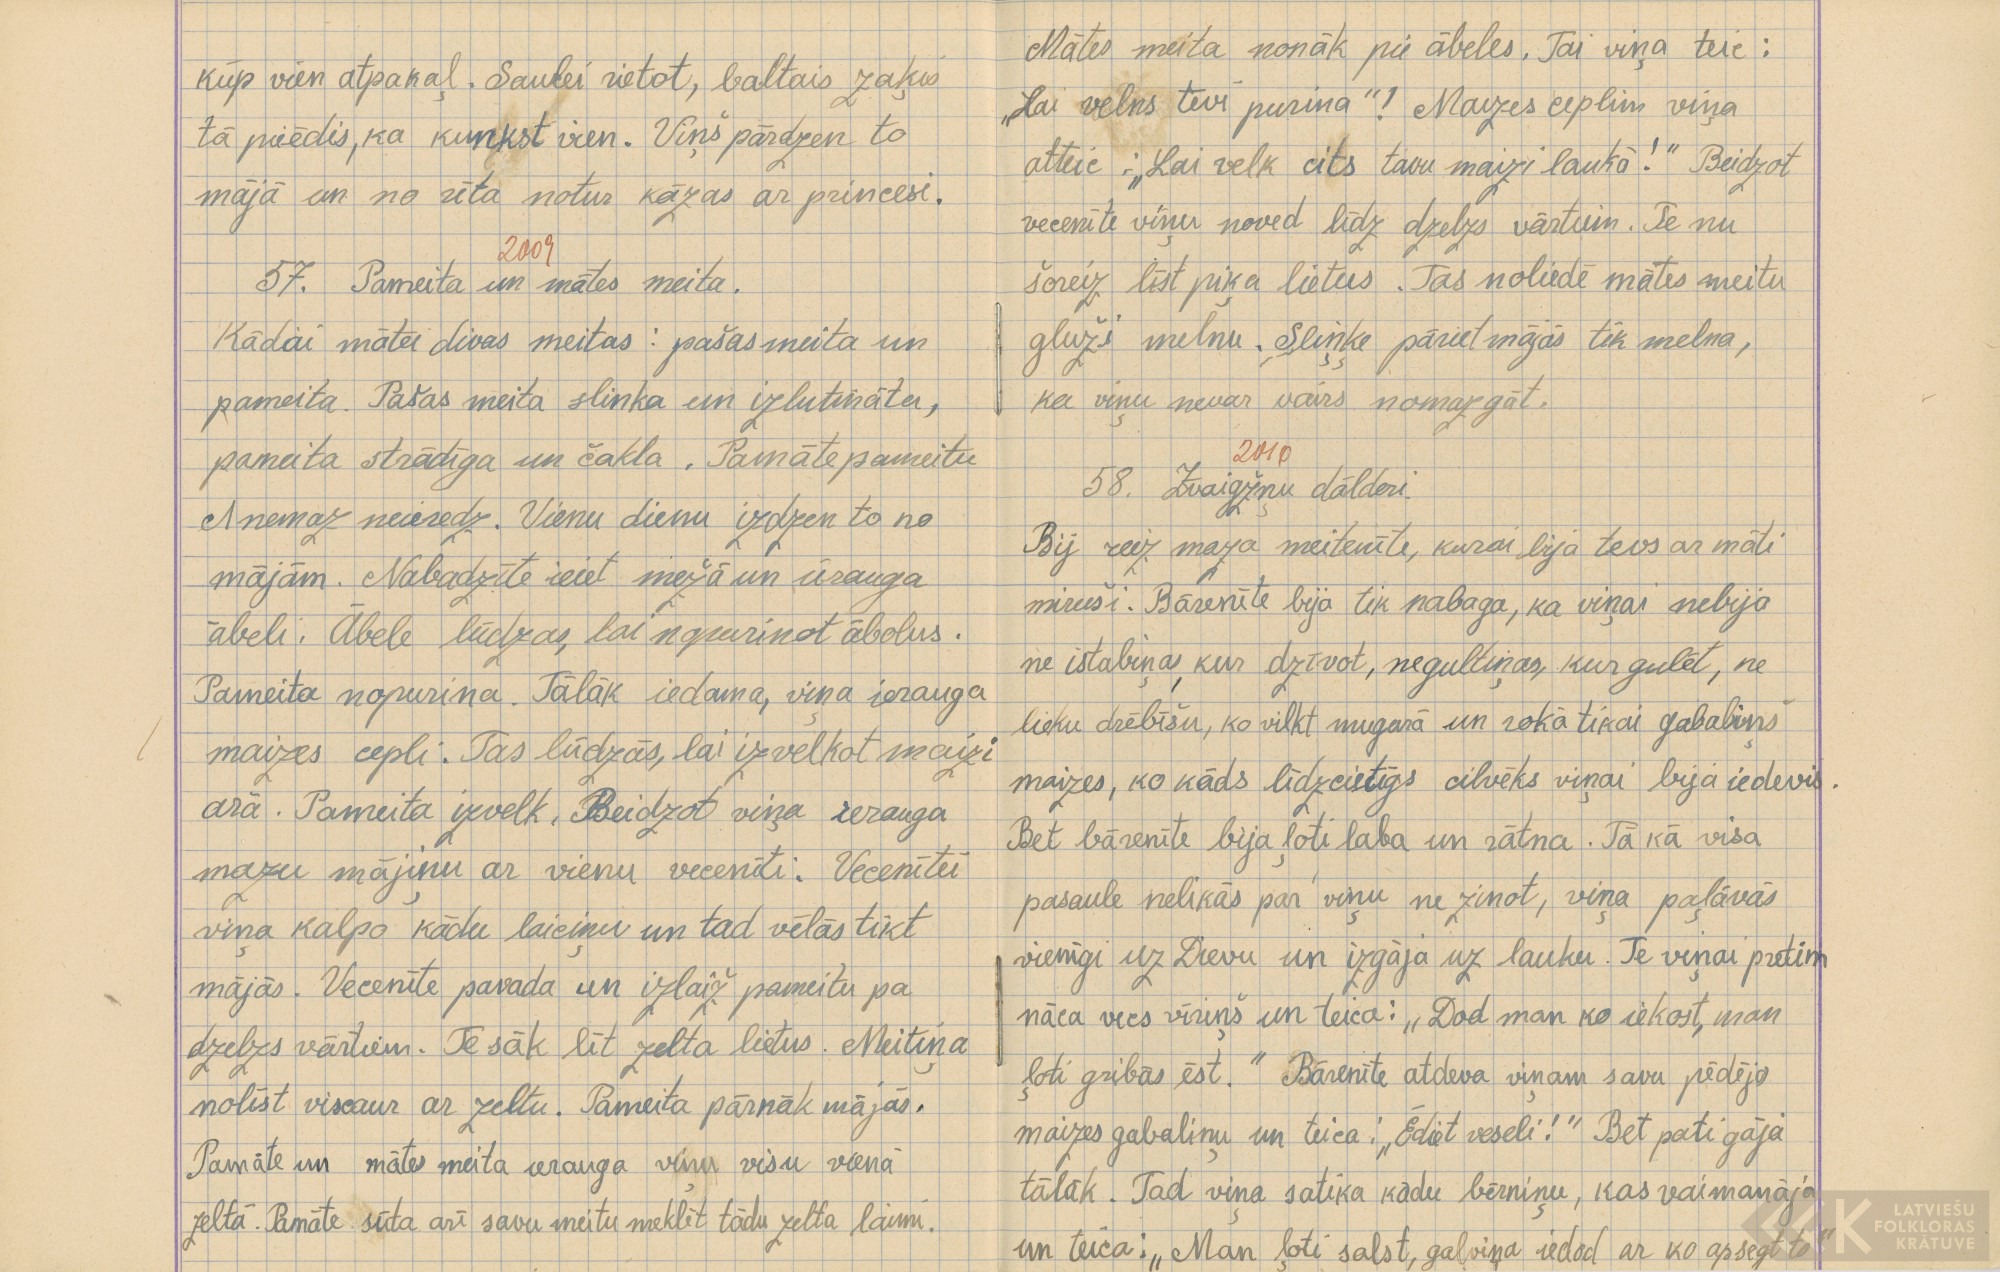 kūp vien atpakaļ. Saulei rietot, baltais zaķis
tā pieēdis, ka kunkst vien. Viņš pārdzen to
mājā un no rīta notur kāzas ar princesi.
2009
57. Pameita un mātes meita.
Kādai mātei divas meitas: pašas meita un
pameita. Pašas meita slinka un izlutināta,
pameita strādīga un čakla. Pamāte pameitu
nemaz neieredz. Vienu dienu izdzen to no
mājām. Nabadzīte ieiet mežā un ūrauga
ābeli. Ābele lūdzas, lai nopurinot ābolus.
Pameita nopurina. Tālāk iedama, viņa ierauga
maizes cepli. Tas lūdzās, lai izvelkot maizi
arā. Pameita izvelk. Beidzot viņa ierauga
mazu mājiņu ar vienu vecenīti. Vecenītei
viņa kalpo kādu laiciņu un tad vēlās tikt
mājās. Vecenīte pavada un izlaiž pameitu pa
dzelzs vārtiem. Te sāk līt zelta lietus. Meitiņa
nolīst viscaur ar zeltu. Pameita pārnāk mājās.
Pamāte un mātes meita ierauga viņu visu vienā
zeltā. Pamāte sūta arī savu meitu meklēt tādu zelta laimi.
Mātes meita nonāk pie ābeles. Tai viņa teic:
„Lai velns tevi purina"! Maizes ceplim viņa
atteic: „Lai velk cits tavu maizi laukā!" Beidzot
vecenīte viņu noved līdz dzelzs vārtiem. Te nu
šoreiz līst piķa lietus. Tas noliedē mātes meitu
gluži melnu. Sliņķe pāriet mājās tik melna,
ka viņu nevar vairs nomazgāt.
2010
58. Zvaigžņu dālderi.
Bij reiz maza meitenīte, kurai bija tevs ar māti
miruši. Bārenīte bija tik nabaga, ka viņai nebija
ne istabiņas, kur dzīvot, ne gultiņas, kur gulēt, ne
lieku drēbīšu, ko vilkt mugarā un rokā tikai gabaliņš
maizes, ko kāds līdzcietīgs cilvēks viņai bija iedevis.
Bet bārenīte bija ļoti laba un rātna. Tā kā visa
pasaule nelikās par viņu ne zinot, viņa paļāvās
vienīgi uz Dievu un izgāja uz lauku. Te viņai pretim
nāca vecs vīriņš un teica: „Dod man ko iekost, man
ļoti gribās ēst." Bārenīte atdeva viņam savu pēdējo
maizes gabaliņu un teica: „Ēdiet veseli!" Bet pati gāja
tālāk. Tad viņa satika kādu bērniņu, kas vaimanāja
un teica: „Man ļoti salst, galviņa iedod ar ko apsegt to"
LATVIEŠU
FOLKLORAS
KRĀTUVE